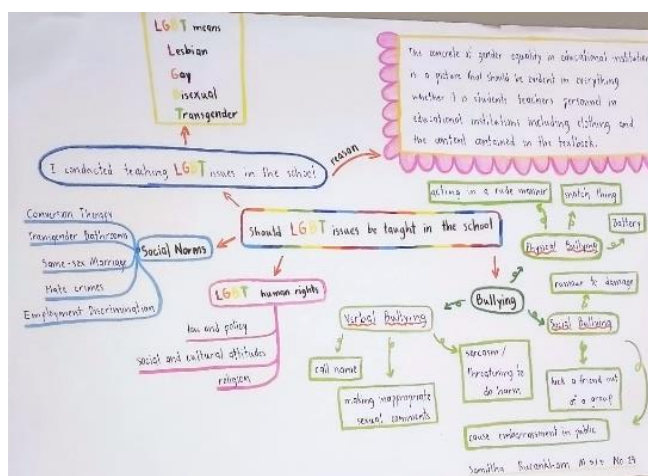 LGBT means
Lesbian
Gay
Bisexual
Transgender
The concrete of gender equality in educational institution
is a picture that should be evident in everything
whether is students teachers personnel in
educational institutions including clothing and
the content contained in the textbook.
reason
I conducted teaching LGBT issues in the school
should LGBT issues be taught in the school
Social Norms
Conversion Therapy
Transgender Bathrooms
Same-sex Marriage
Hate crimes
Employment Discrimination
LGBT human rights
law and policy
social and cultural attitudes
religion
Bullying
Physical Bullying
acting in a rude manner
thing
Battery
Verbal Bullying
call name
making inappropriate
sexual comments
sarcasm /
threatening to
do harm
Social Bullying
rumour to damage
kick a friend out
of a group
cause embarrassment in public
No